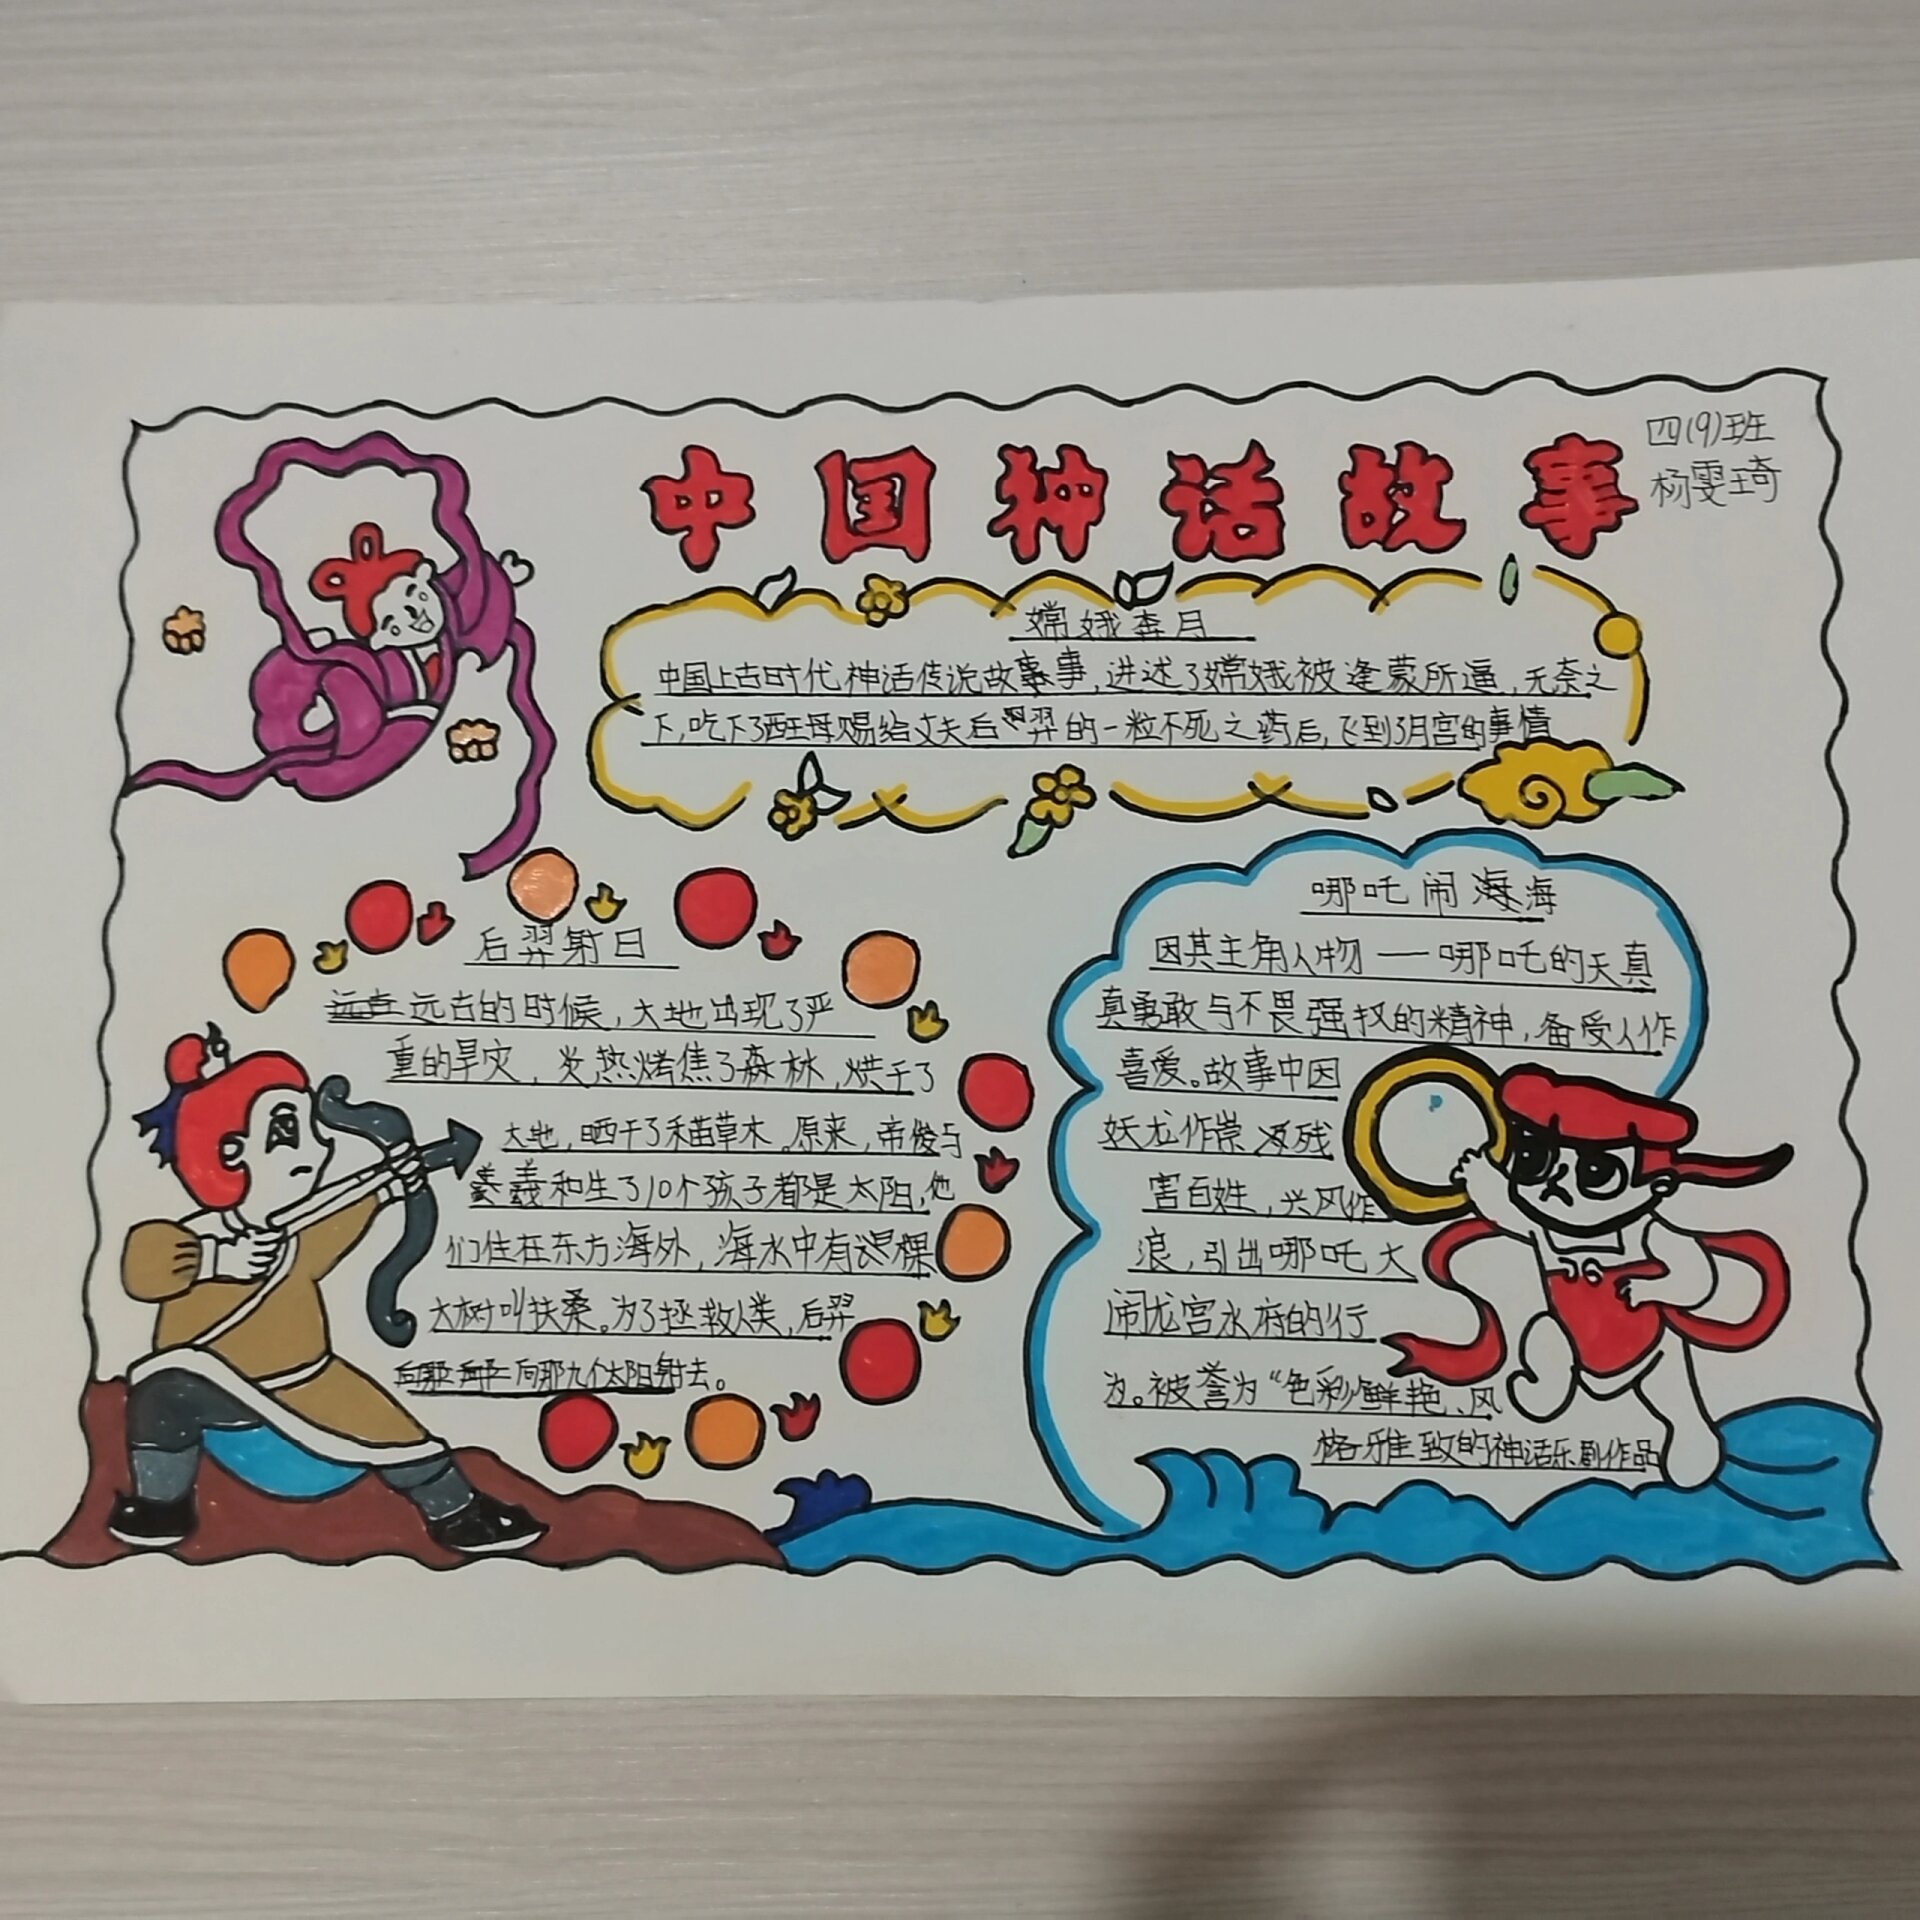 中国神话故事
四(9)班
杨雯琦
嫦娥奔月
中国上古时代神话传说故事事,进述了嫦娥被逢蒙所逼,无奈之
下,吃下了西王母赐给丈夫后羿的一粒不死之药后,飞到了月宫的事情
后羿射日
远古远古的时候,大地出现了严
重的旱灾,炎热烤焦了森林,烘干了
大地,晒干了禾苗草木。原来,帝俊与
羲羲和生了10个孩子都是太阳,他
们住在东方海外,海水中有棵
大树叫扶桑。为了拯救人类,后羿
向那 向那九个太阳射去。
哪吒闹海海
因其主角人物——哪吒的天真
真勇敢与不畏强权的精神,备受人作
喜爱。故事中因
妖龙作崇 残
害百姓,兴风作
浪,引出哪吒大
闹龙宫水府的行
为。被誉为“色彩鲜艳、风
格雅致的神话乐剧作品